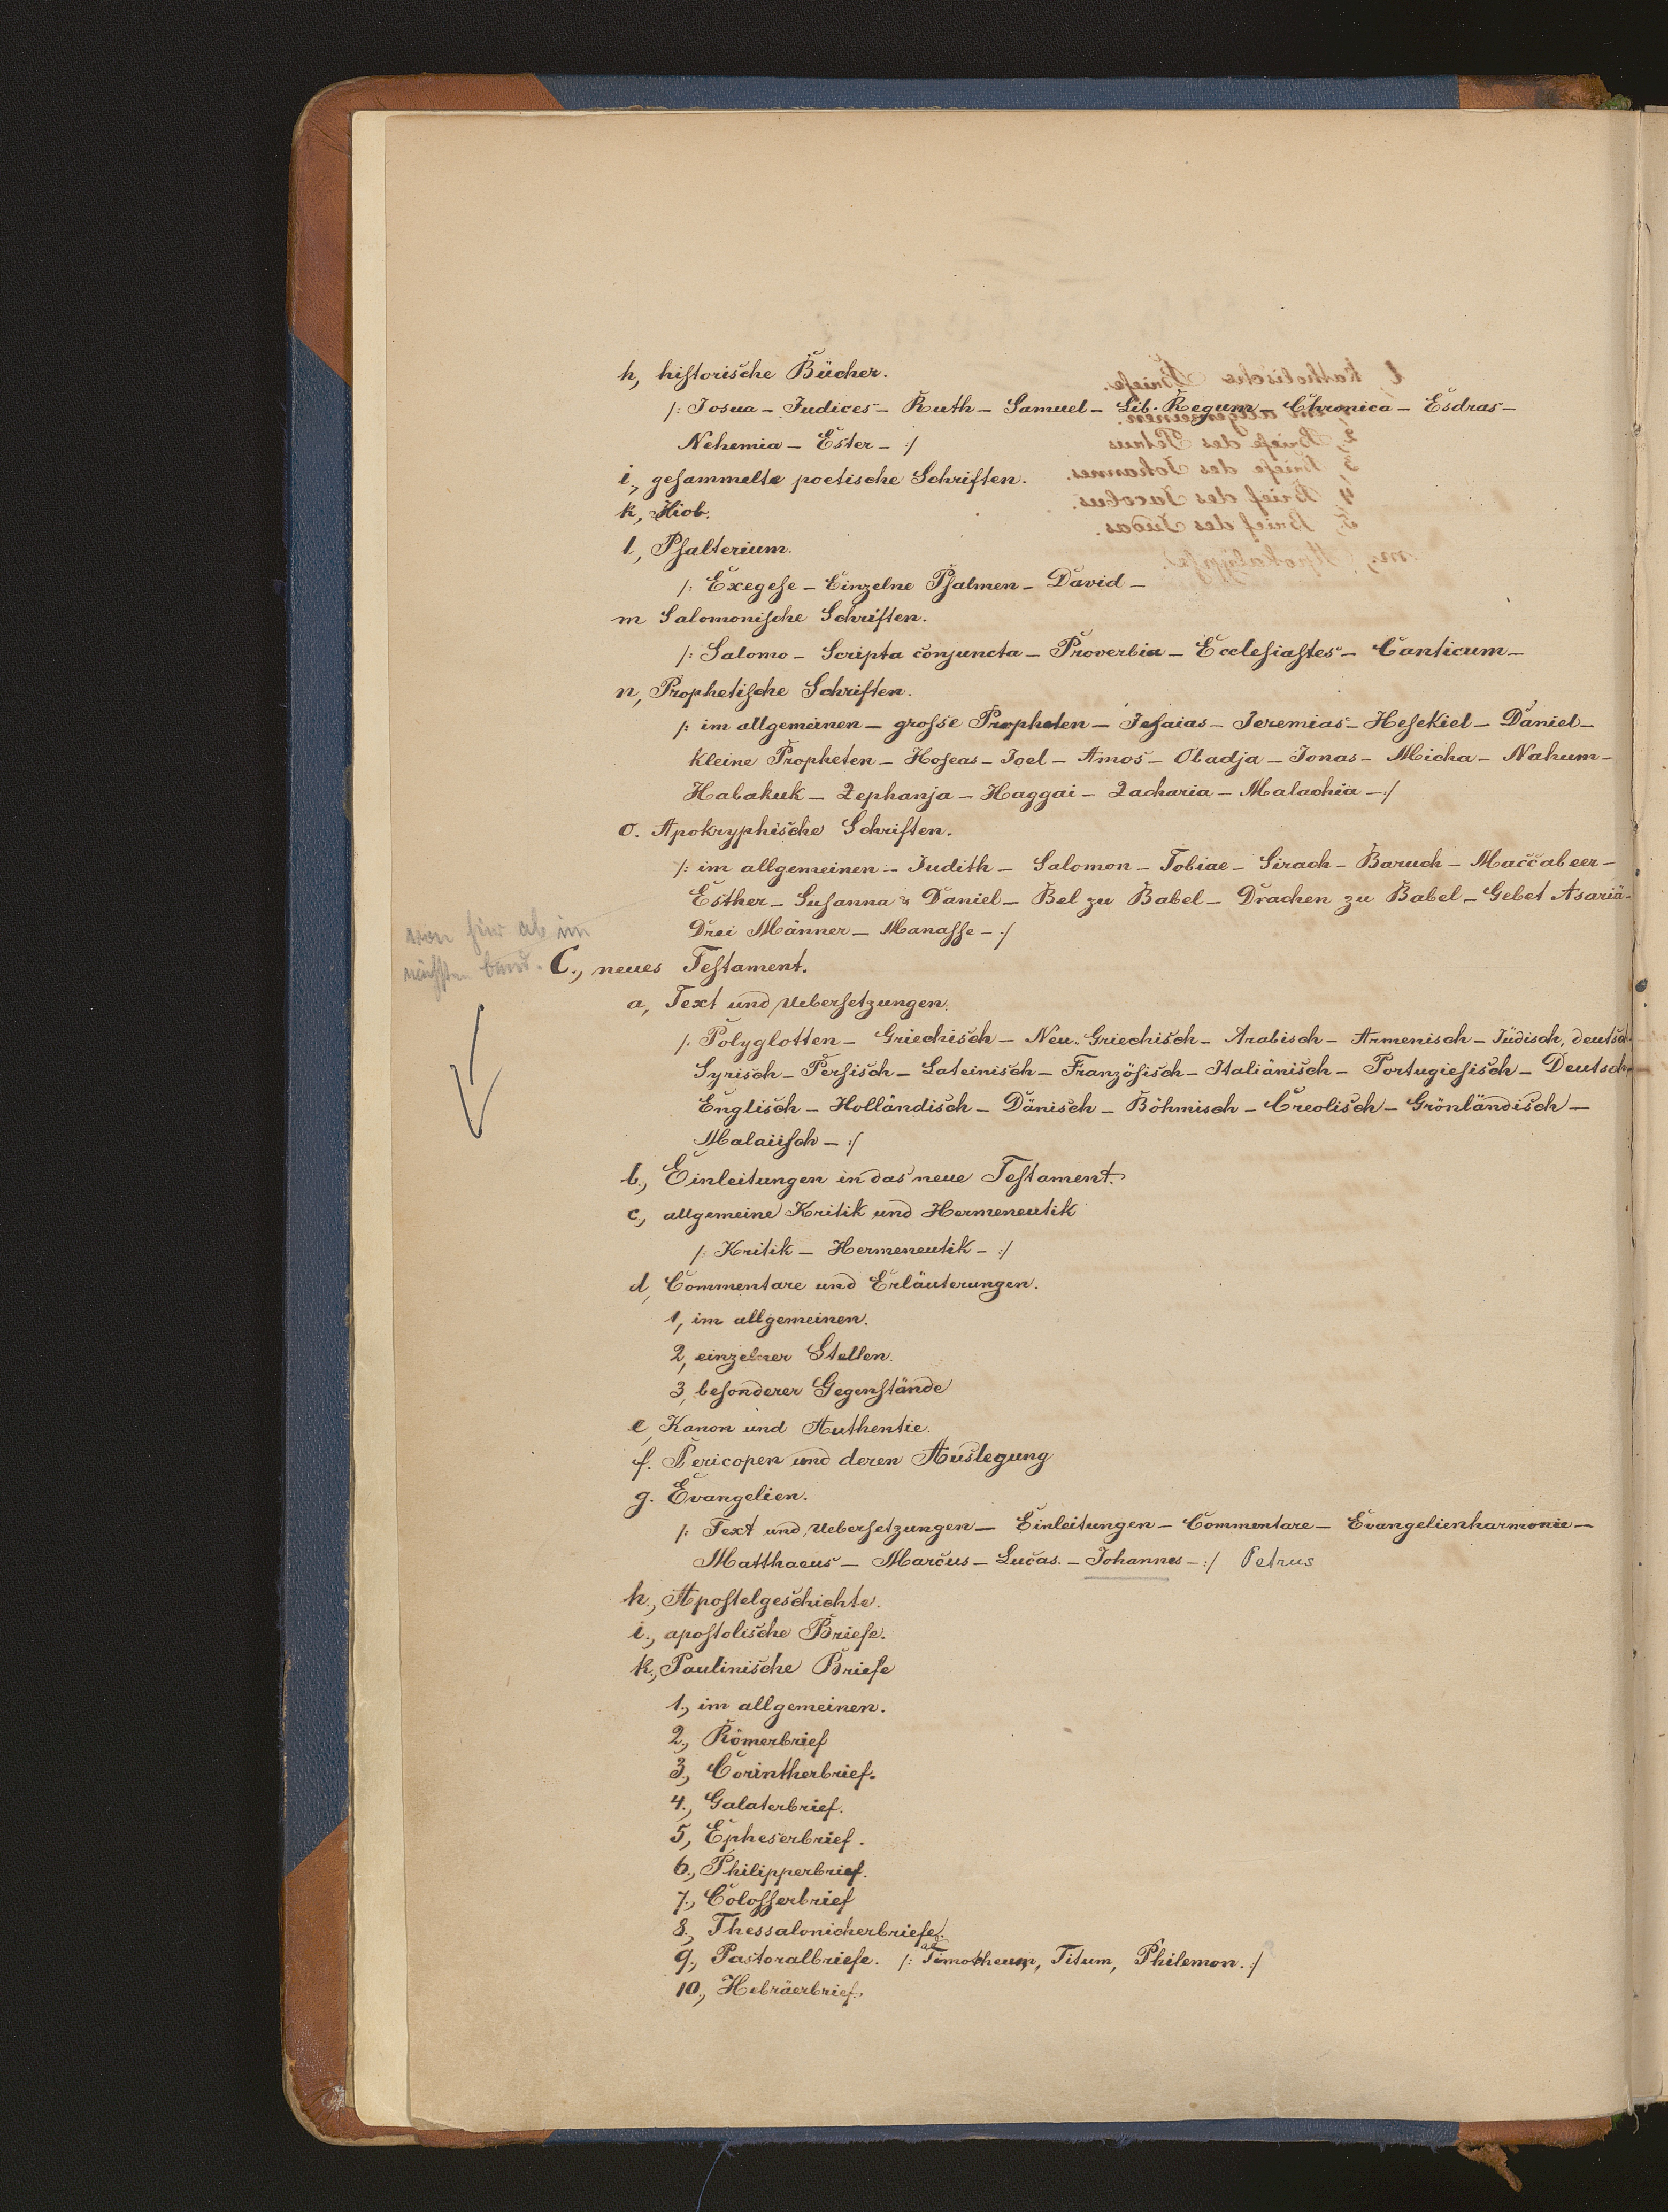 h, historische Bücher.
/: Josua – Judices – Ruth – Samuel – Lib. Regum – Chronica – Esdras –
Nehemia – Ester – :/
i, gesammelte poetische Schriften.
k, Hiob.
l, Psalterium.
/: Exegese – Einzelne Psalmen – David –
m Salomonische Schriften.
/: Salomo – Scripta conjuncta – Proverbia – Ecclesiastes – Canticum –
n, Prophetische Schriften.
/: im allgemeinen – grosse Propheten – Jesaias – Jeremias – Hesekiel – Daniel –
kleine Propheten – Hoseas – Joel – Amos – Obadja – Jonas – Micha – Nahum –
Habakuk – Zephanja – Haggai – Zacharia – Malachia – :/
o. Apokryphische Schriften.
/: im allgemeinen – Judith – Salomon – Tobiae – Sirach – Baruch – Maccabeer –
Esther – Susanna & Daniel – Bel zu Babel – Drachen zu Babel – Gebet Asariä –
Drei Männer – Manasse – :/
von hier ab im
nächsten Band.
C., neues Testament.
a, Text und Uebersetzungen.
/: Polyglotten – Griechisch – Neu-Griechisch – Arabisch – Armenisch – Jüdisch, deutsch
Syrisch – Persisch – Lateinisch – Französisch – Italiänisch – Portugiesisch – Deutsch
Englisch – Holländisch – Dänisch – Böhmisch – Creolisch – Grönländisch –
Malaiisch – :/
b., Einleitungen in das neue Testament.
c., allgemeine Kritik und Hermeneutik
/: Kritik – Hermeneutik – :/
d, Commentare und Erläuterungen.
1, im allgemeinen.
2, einzelner Stellen.
3, besonderer Gegenstände
e, Kanon und Authentie.
f. Pericopen und deren Auslegung
g. Evangelien.
/: Text und Uebersetzungen – Einleitungen – Commentare – Evangelienharmonie –
Matthaeus – Marcus – Lucas – Johannes – :/ Petrus
h., Apostelgeschichte.
i., apostolische Briefe.
k., Paulinische Briefe
1., im allgemeinen.
2., Römerbrief
3., Corintherbrief.
4., Galaterbrief.
5, Epheserbrief.
6., Philipperbrief.
7., Colosserbrief
8., Thessalonicherbriefe.
9., Pastoralbriefe. /: ad Timotheum, Titum, Philemon. :/
10., Hebräerbrief.